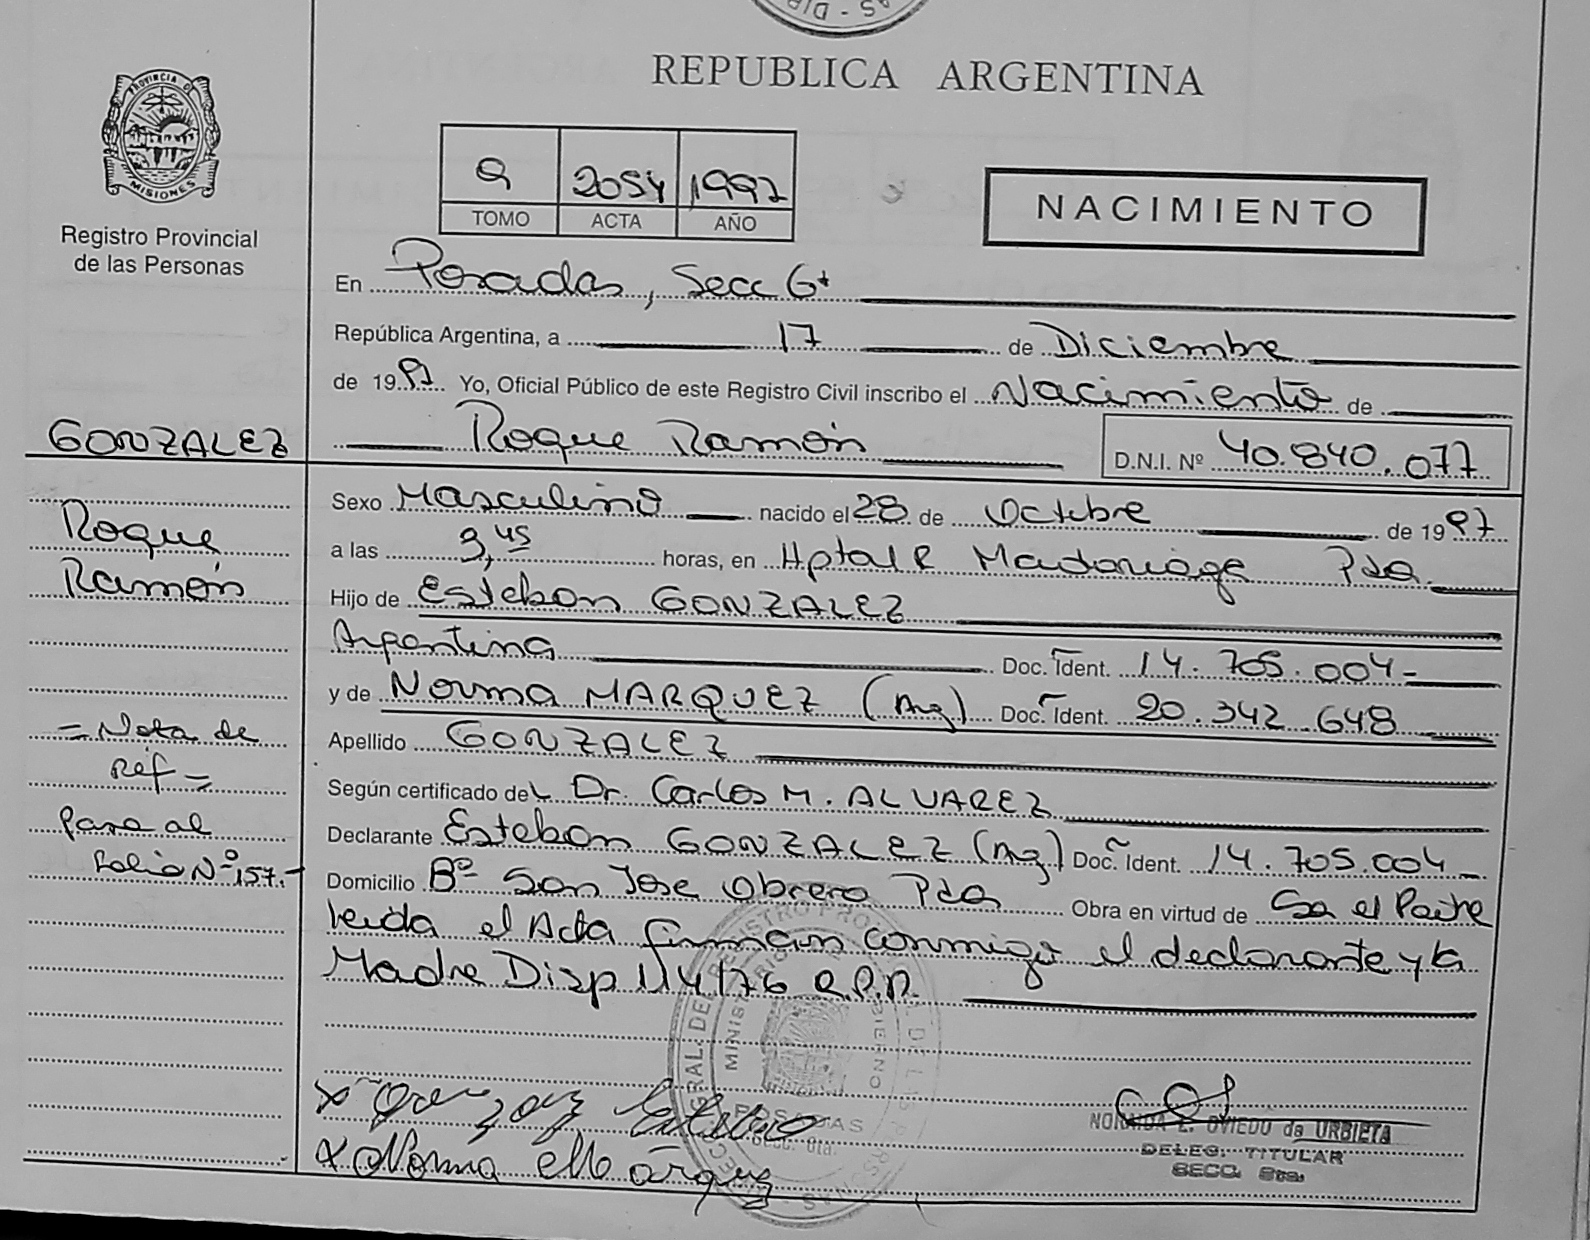 REPUBLICA ARGENTINA
PROVINCIA DE
MISIONES
Registro Provincial
de las Personas
9 2054 1997
TOMO ACTA AÑO
NACIMIENTO
En Posadas, Secc 6ta
República Argentina, a 17 de Diciembre
de 1997 Yo, Oficial Público de este Registro Civil inscribo el Nacimiento de
GONZALEZ
Roque Ramón D.N.I. Nº 40.840.077
Sexo Masculino nacido el 28 de Octubre de 1997
Roque
a las 9,45 horas, en Hptal R Madariaga Pdas
Ramón
Hijo de Esteban GONZALEZ
Argentina Doc. Ident. 14.705.004
y de Norma MARQUEZ (Arg) Doc. Ident. 20.342.648
= Nota de
Ref =
Pasa al
Folio Nº 157.-
Apellido GONZALEZ
Según certificado del Dr. Carlos M. ALVAREZ
Declarante Esteban GONZALEZ (Arg) Doc. Ident. 14.705.004
Domicilio Bº San Jose Obrero Pdas Obra en virtud de Ser el Padre
leida el Acta firman conmigo el declarante y la
Madre Disp 114/76
NORMIDA E. OVIEDO de URBIETA
DELEG. TITULAR
SECC. 6ta.
Norma Marquez